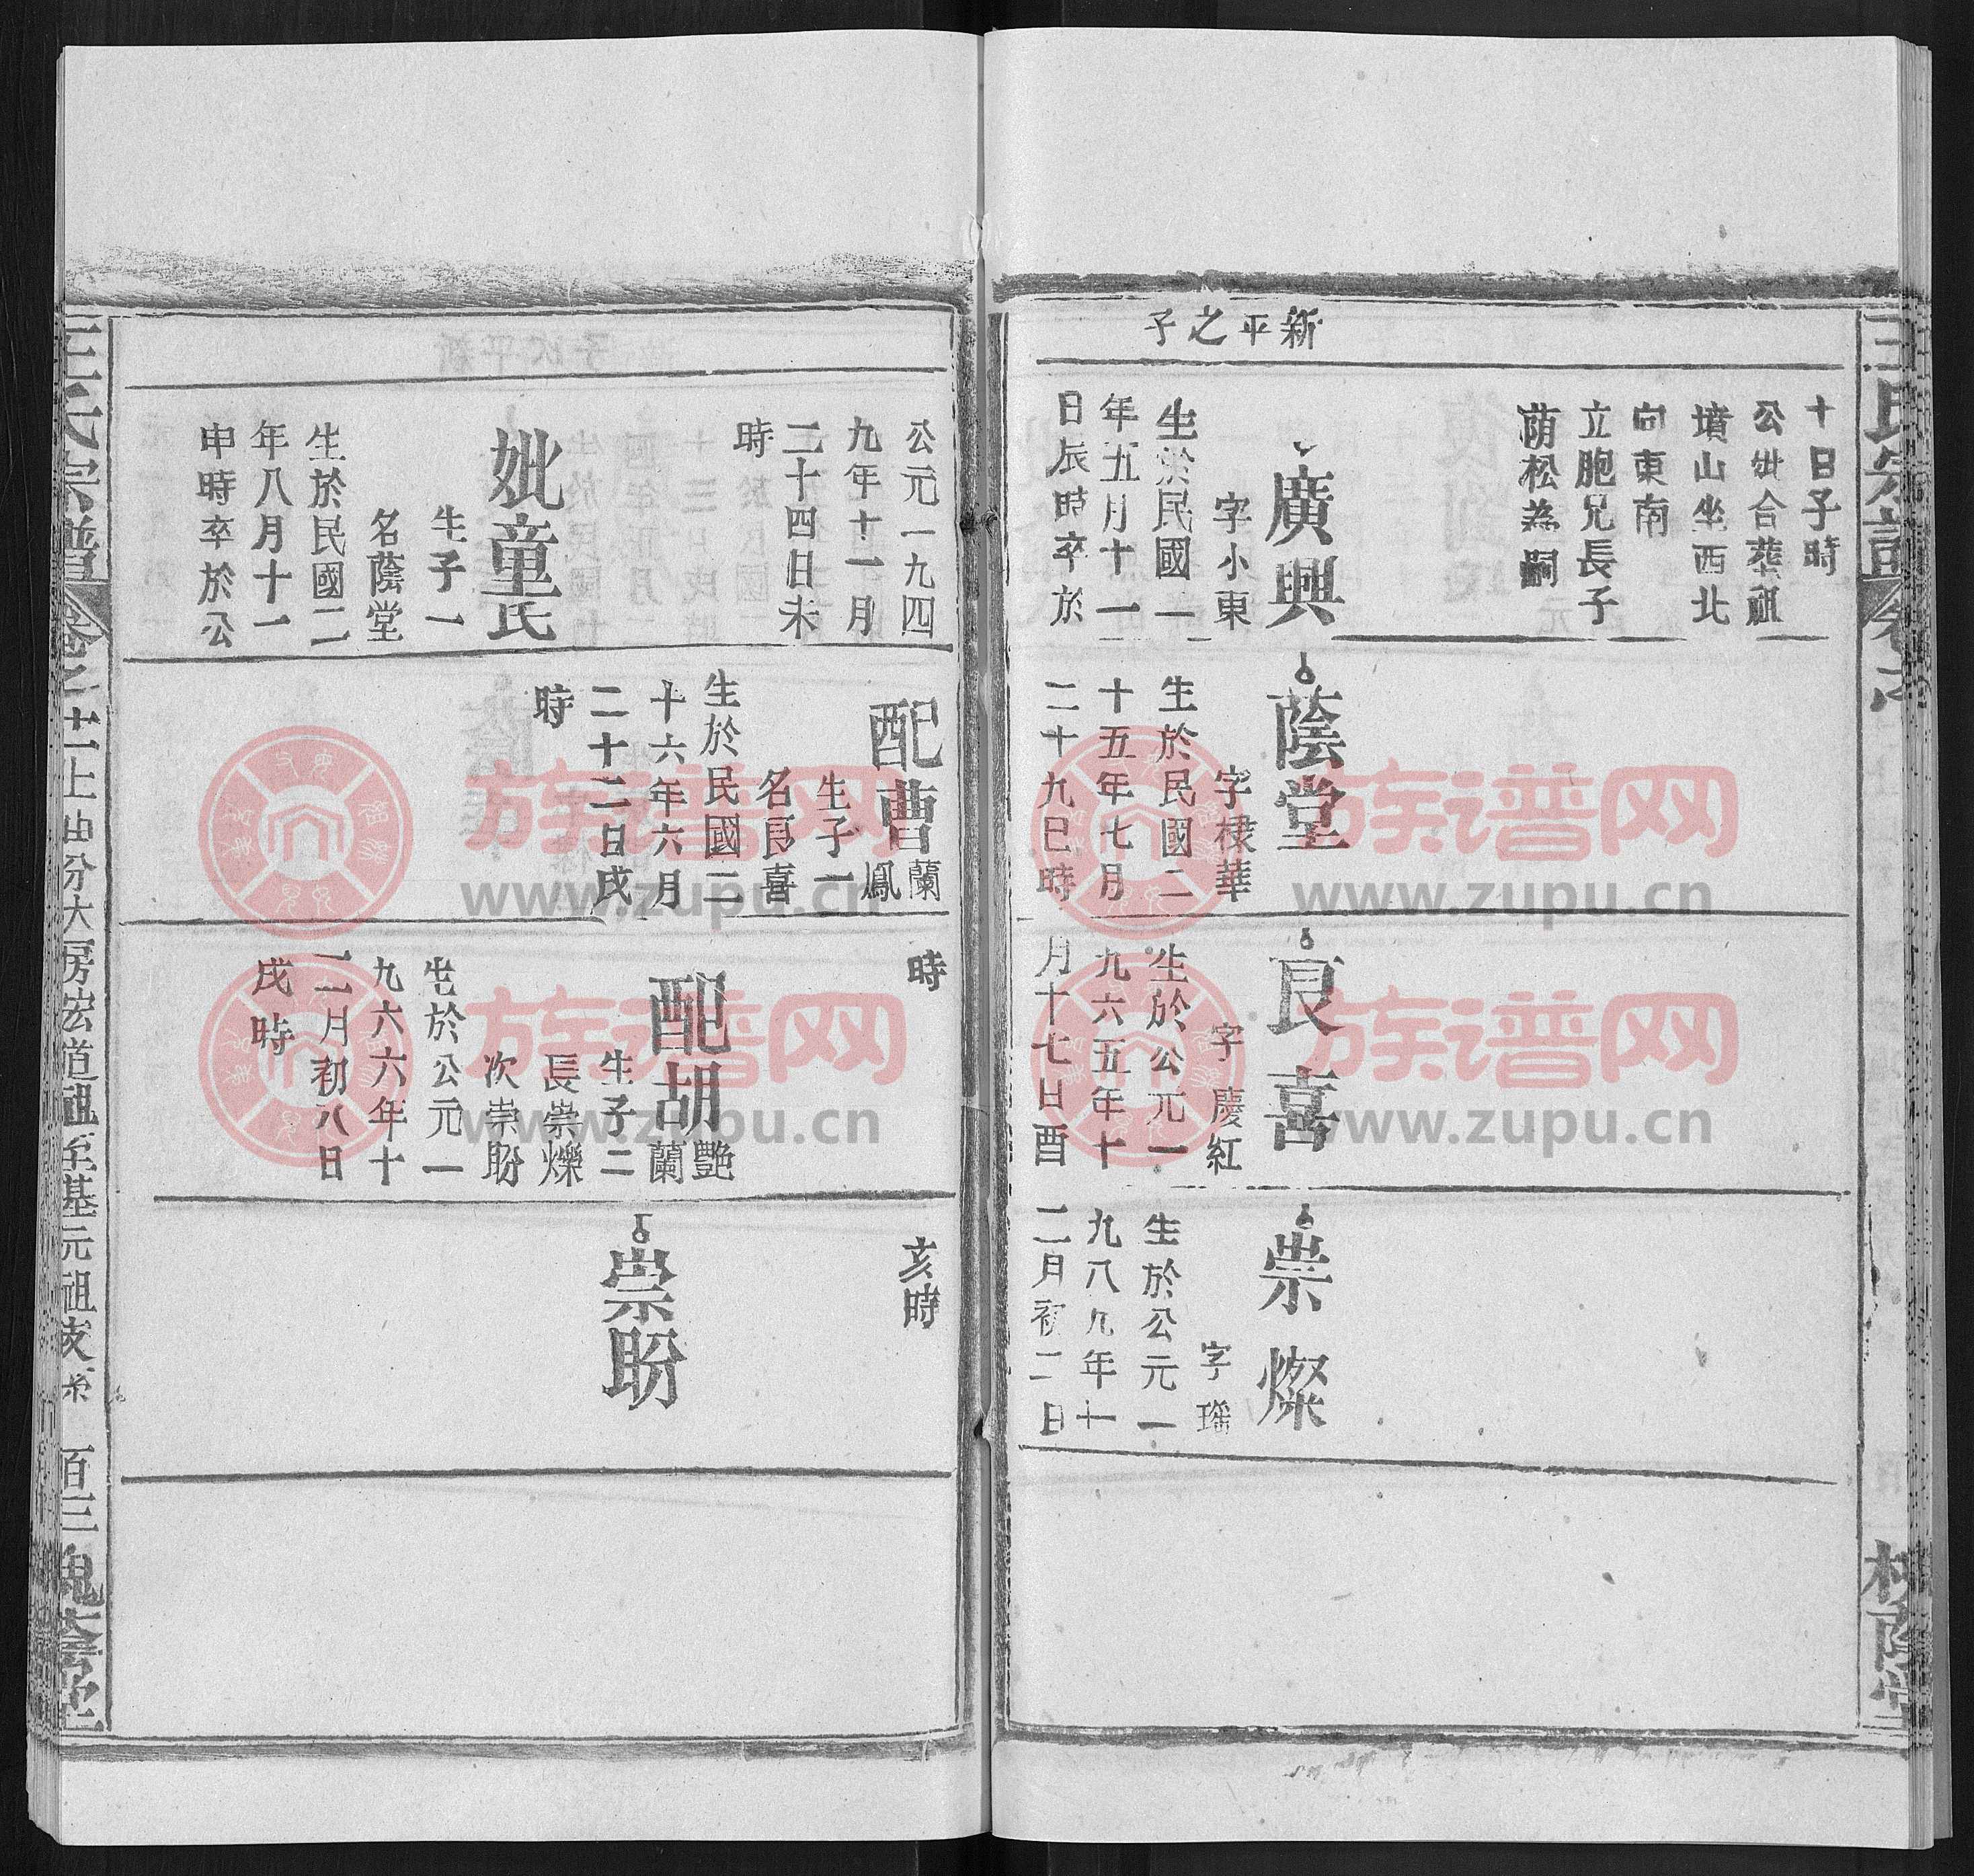 新平之子
十日子時
公妣合葬祖
墳山坐西北
向東南
立胞兄長子
蔭松為嗣
廣興
字小東
生於民國一
年五月十一
日辰時卒於
蔭堂
字棱華
生於民國二
十五年七月
二十九巳時
良喜
字慶紅
生於公元一
九六五年十
月十七日酉
崇燦
字瑶
生於公元一
九八九年十
二月初二日
公元一九四
九年十一月
二十四日未
時
妣童氏
生子一
名蔭堂
生於民國二
年八月十一
申時卒於公
配曹蘭鳳
生子一
名良喜
生於民國二
十六年六月
二十二日戌
時
時
配胡艷蘭
生子二
長崇爍
次崇盼
生於公元一
九六六年十
二月初八日
戌時
亥時
崇盼
王氏宗譜
卷之十二上由分大房宏道祖至基元祖支系
百三
槐蔭堂
族谱网
www.zupu.cn
族谱网
www.zupu.cn
族谱网
www.zupu.cn
族谱网
www.zupu.cn